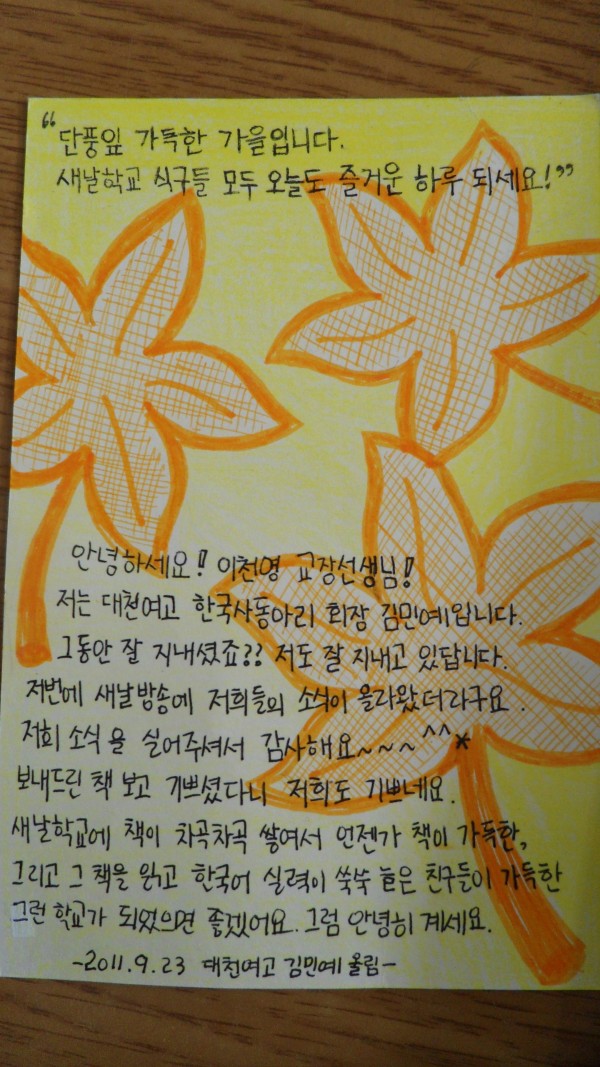 “단풍잎 가득한 가을입니다.
새날학교 식구들 모두 오늘도 즐거운 하루 되세요!”
안녕하세요! 이천영 교장선생님!
저는 대천여고 한국사동아리 회장 김민예입니다.
그동안 잘 지내셨죠?? 저도 잘 지내고 있답니다.
저번에 새날방송에 저희들의 소식이 올라왔더라구요.
저희 소식을 실어주셔서 감사해요~~~^^*
보내드린 책 보고 기쁘셨다니 저희도 기쁘네요.
새날학교에 책이 차곡차곡 쌓여서 언젠가 책이 가득한,
그리고 그 책을 읽고 한국어 실력이 쑥쑥 늘은 친구들이 가득한
그런 학교가 되었으면 좋겠어요. 그럼 안녕히 계세요.
-2011.9.23 대천여고 김민예 올림-